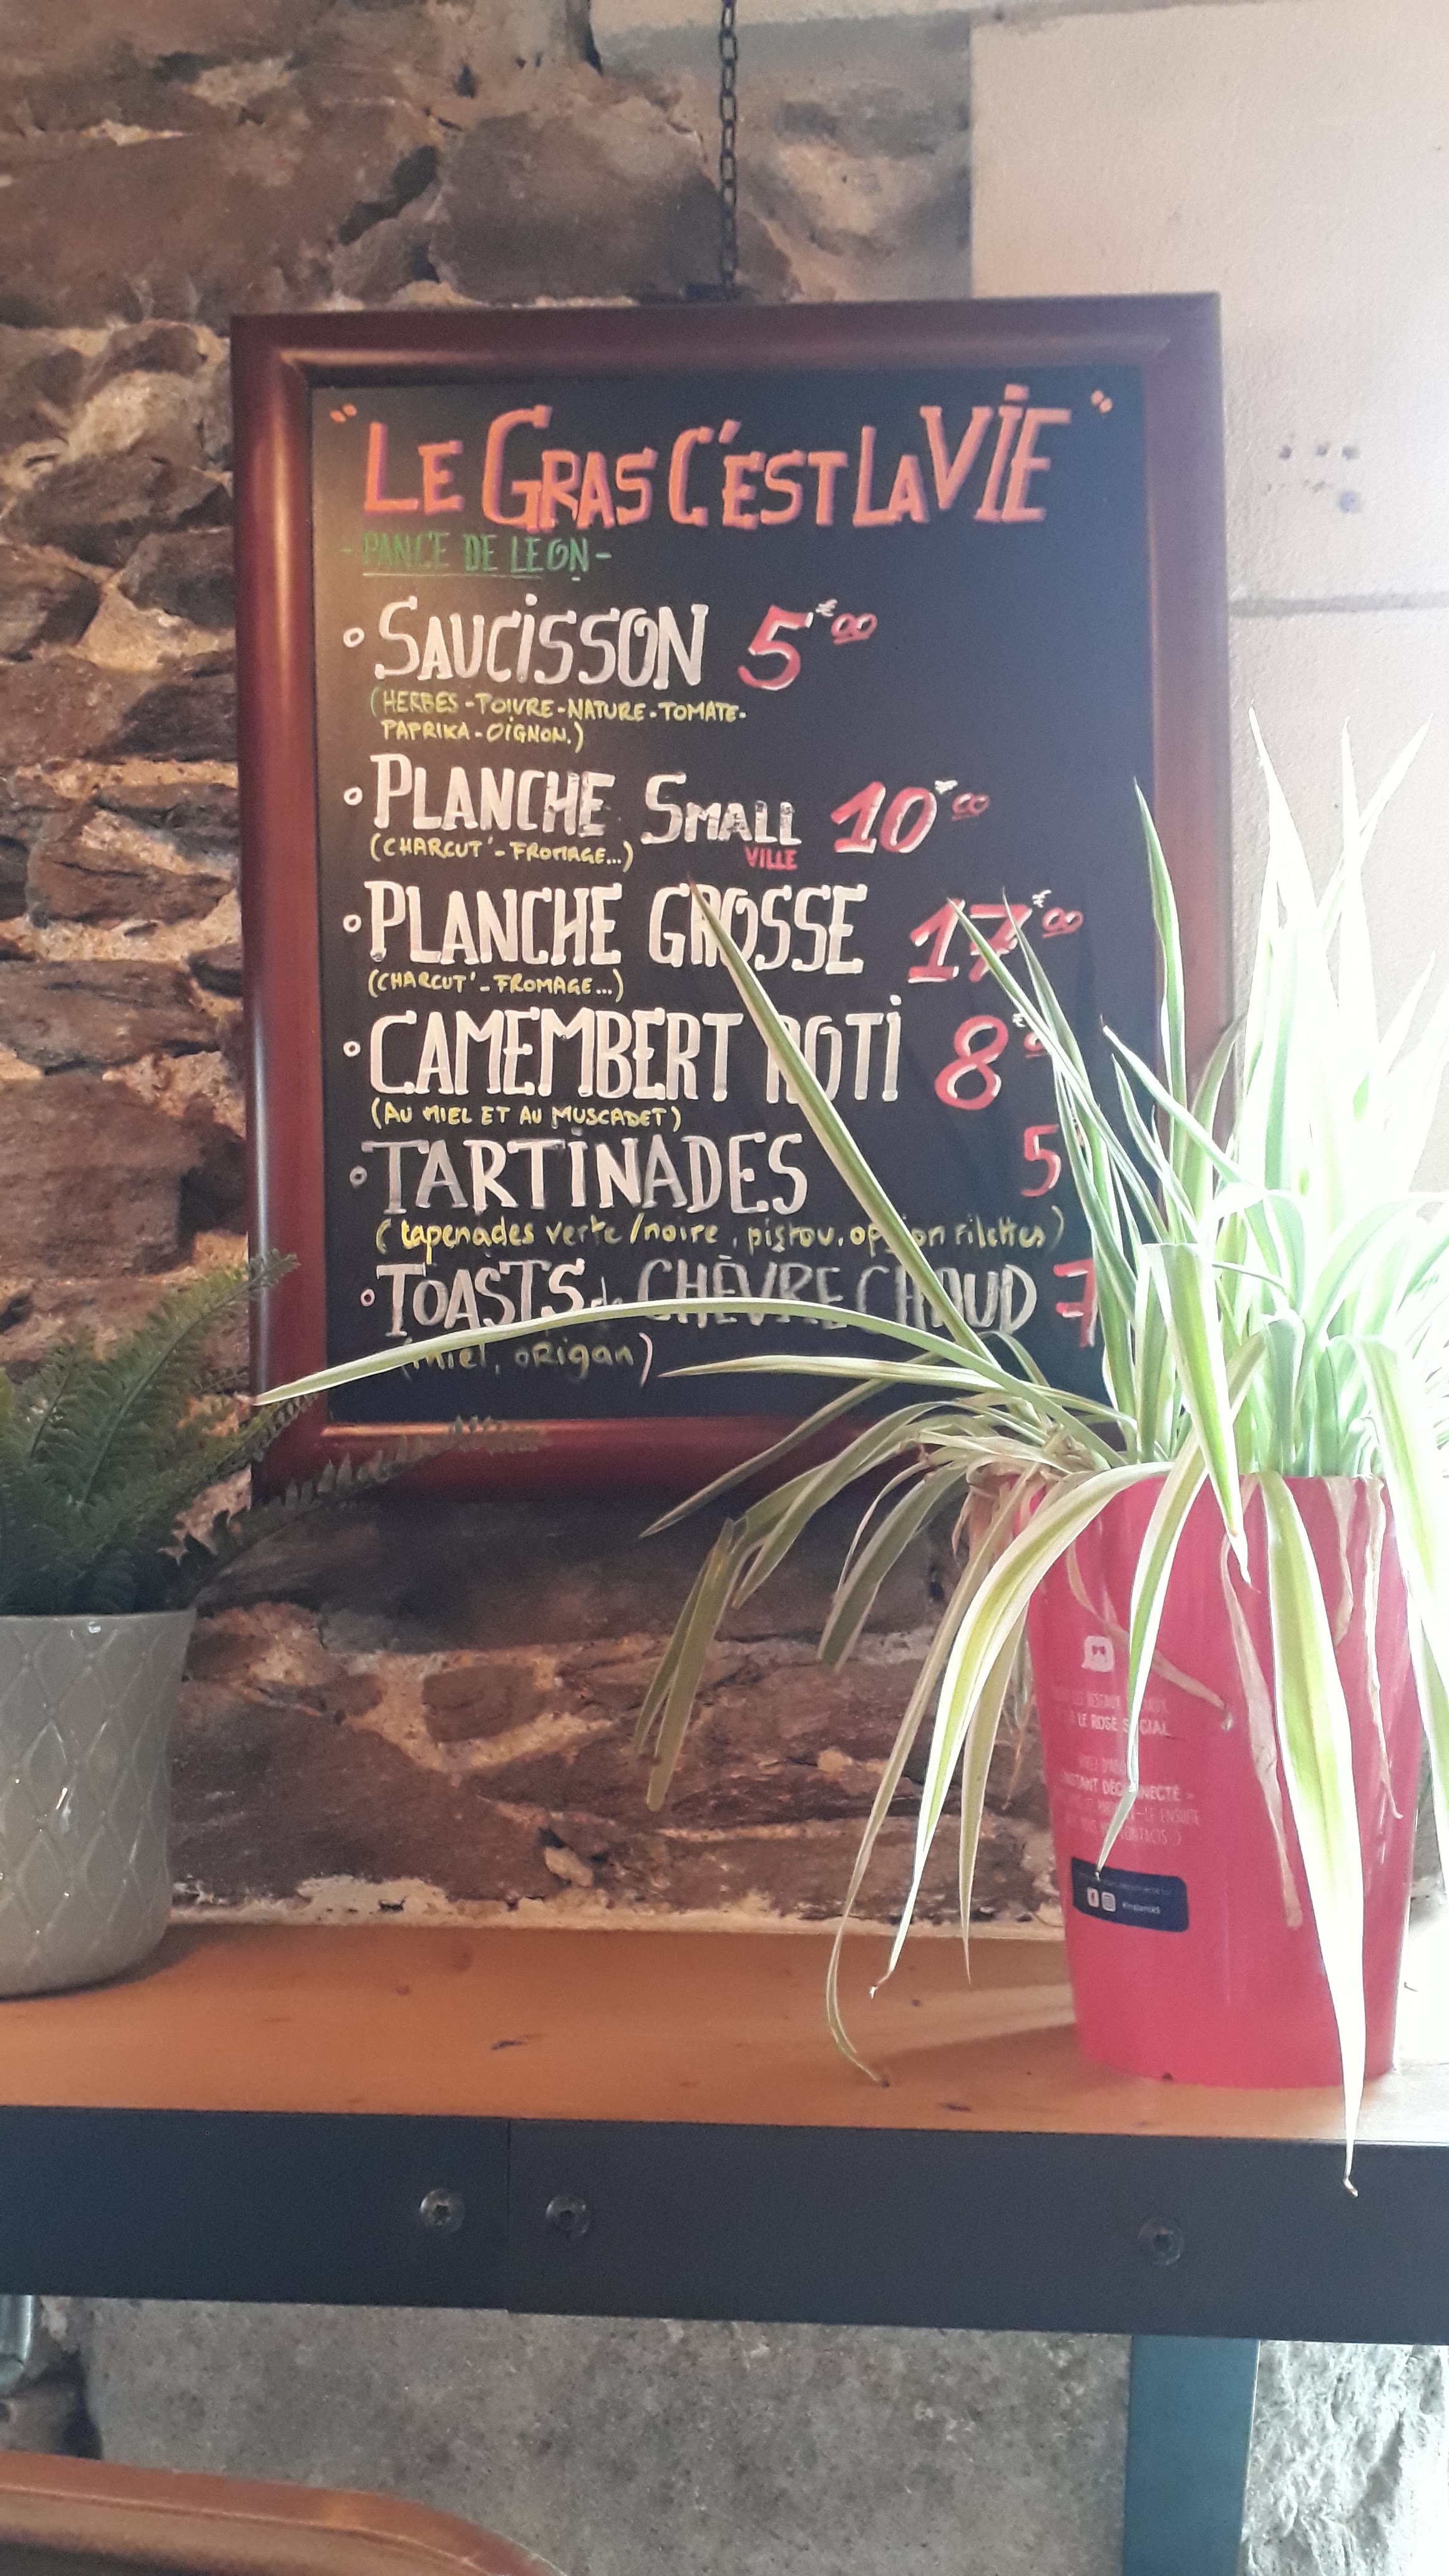 "LE GRAS C'EST LA VIE"
- PANCE DE LEON -
° SAUCISSON 5,€00
(HERBES - POIVRE - NATURE - TOMATE -
PAPRIKA - OIGNON.)
° PLANCHE SMALL 10€00
(CHARCUT' - FROMAGE...) VILLE
° PLANCHE GROSSE 17€00
(CHARCUT' - FROMAGE...)
° CAMEMBERT ROTI 8€
(AU MIEL ET AU MUSCADET)
° TARTINADES 5
(tapenades verte/noire, pistou, option rilettes)
° TOASTS de CHÈVRE CHAUD 7
(miel, origan)
LE ROSÉ SOCIAL
INSTANT DÉCONNECTÉ »